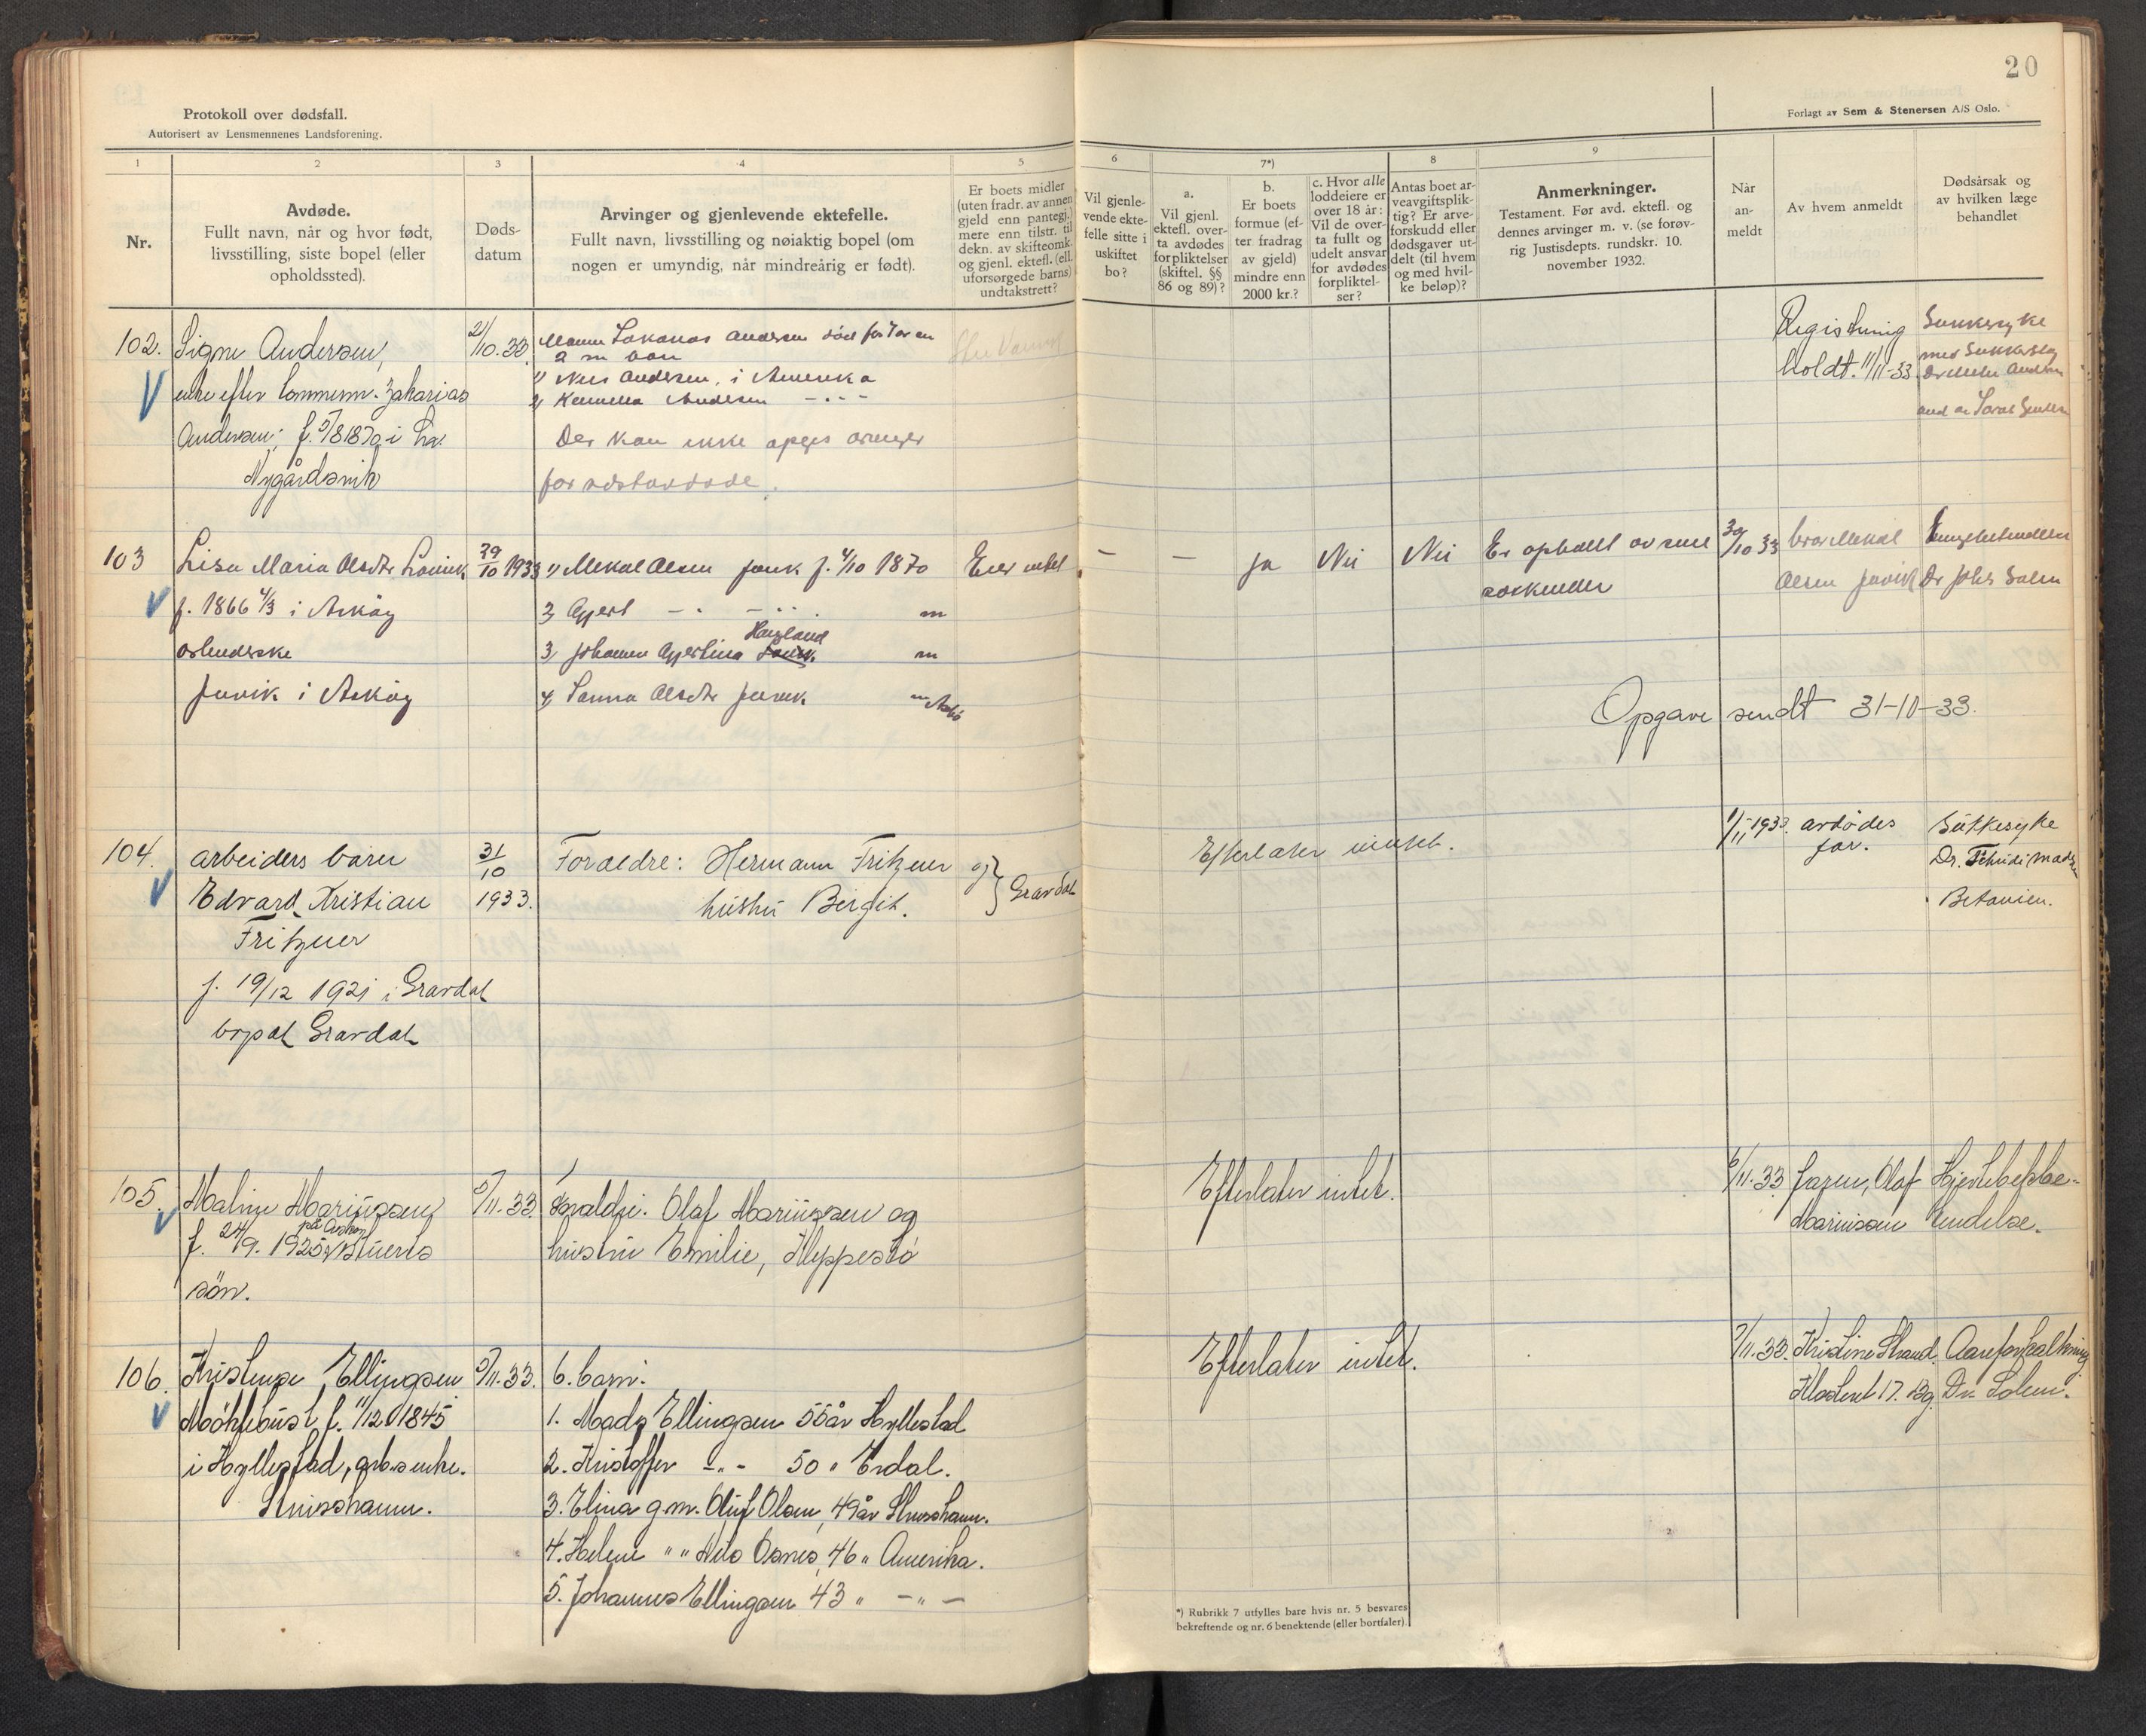 20
Protokoll over dødsfall.
Autorisert av Lensmennenes Landsforening.
Forlagt av Sem & Stenersen A/S Oslo.
1 2 3 4 5 6 7*) 8 9
Nr.
Avdøde.
Fullt navn, når og hvor født,
livsstilling, siste bopel (eller
opholdssted).
Døds-
datum
Arvinger og gjenlevende ektefelle.
Fullt navn, livsstilling og nøiaktig bopel (om
nogen er umyndig, når mindreårig er født).
Er boets midler
(uten fradr. av annen
gjeld enn pantegj.)
mere enn tilstr. til
dekn. av skifteomk.
og gjenl. ektef. (ell.
uforsørgede barns)
undtakstrett?
Vil gjenle-
vende ekte-
felle sitte i
uskiftet
bo?
a.
Vil gjenl.
ektefl. over-
ta avdødes
forpliktelser
(skiftel. §§
86 og 89)?
b.
Er boets
formue (ef-
ter fradrag
av gjeld)
mindre enn
2000 kr.?
c. Hvor alle
loddeiere er
over 18 år:
Vil de over-
ta fullt og
udelt ansvar
for avdødes
forpliktel-
ser?
Antas boet ar-
veavgiftsplik-
tig? Er arve-
forskudd eller
dødsgaver ut-
delt (til hvem
og med hvil-
ke beløp)?
Anmerkninger.
Testament. Før avd. ektefl. og
dennes arvinger m. v. (se forøv-
rig Justisdepts. rundskr. 10.
november 1932.
Når
an-
meldt
Av hvem anmeldt
Dødsårsak og
av hvilken læge
behandlet
102. Signe Andersen,
enke efter tømmerm. Zakarias
Andersen, f. 5/8 1870 i
Nygårdsvik
21/10.33
Andersen død for 7 år
2 m barn
1) Nils Andersen, i Amerika
2) Andersen -.-
Der kan ikke opgis arvinger
for
Registrering
holdt. 11/11-33.
Sukkersyke
103 Lisa Maria Olsdtr Juvik
f. 1866 4/3 i Askøy
arbeiderske
Juvik i Askøy
29/10 1933
1) Mikal Olsen Juvik f. 4/10 1870
2) Gjert
3) Johanna Gjertina Haugland
4) Sanna Olsdtr Juvik
Eier intet
- - ja Nei Nei
Er opholdt av sine
søskender
30/10 33
bror Mikal
Olsen Juvik
Dr Johs Solem
Opgave sendt 31-10-33.
104. arbeiders barn
Edvard Kristian
Fritzner
f. 19/12 1921 i Gravdal
bopæl Gravdal
31/10
1933.
Foraeldre: Hermann Fritzner og
hustru Birgit.
Gravdal
Efterlater intet.
1/11-1933.
avdødes
far.
Sukkesyke
Dr.
Betanien.
105. Malvin Mariussen
f. 24/9. 1925
på Askøy
sön.
5/11.33.
Foraldre: Olaf Mariussen og
hustru Emilie, Kleppestø
Efterlater intet.
6/11.33.
faren, Olaf
Mariussen
Hjertebetæn-
endelse.
106. Kristense Ellingsen
f. 11/12 1845
i Hyllestad, arb.s enke.
Strusshamn.
5/11.33.
6. barn:
1. Mads Ellingsen 55 år Hyllestad
2. Kristoffer -"- 50 " Erdal.
3. Elina g.m. Oluf Olsen, 49 år Strusshamn.
4. Helene " " Nils Osnes, 46 " Amerika.
5. Johannes Ellingsen 43 " -"-
Efterlater intet.
7/11.33.
Kristine Strand.
Klosteret 17. Bg.
Aareforkalkning
Dr. Solem.
*) Rubrikk 7 utfylles bare hvis nr. 5 besvares
bekreftende og nr. 6 benektende (eller bortfaler).